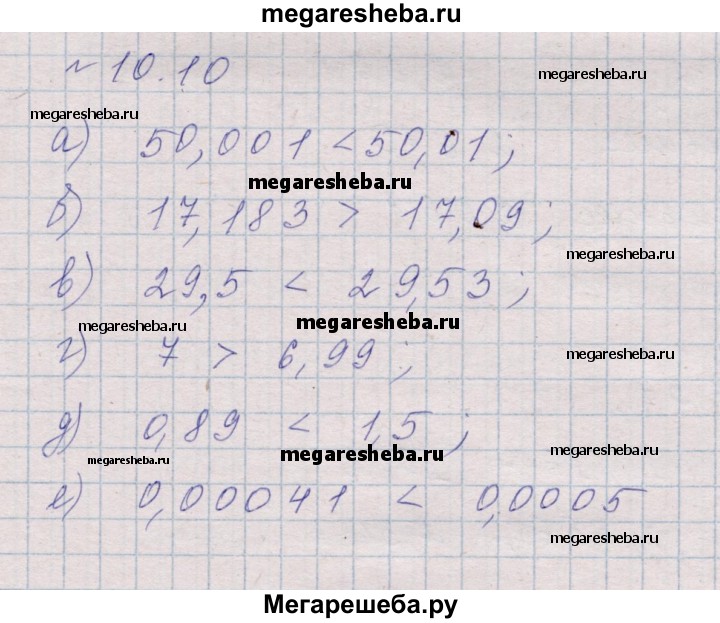 megaresheba.ru
№ 10.10
megaresheba.ru
megaresheba.ru
а) 50,001 < 50,01;
megaresheba.ru
б) 17,183 > 17,09;
megaresheba.ru
в) 29,5 < 29,53;
megaresheba.ru
megaresheba.ru
г) 7 > 6,99;
megaresheba.ru
д) 0,89 < 1,5;
megaresheba.ru
megaresheba.ru
megaresheba.ru
е) 0,00041 < 0,0005
megaresheba.ru
Мегарешеба.ру